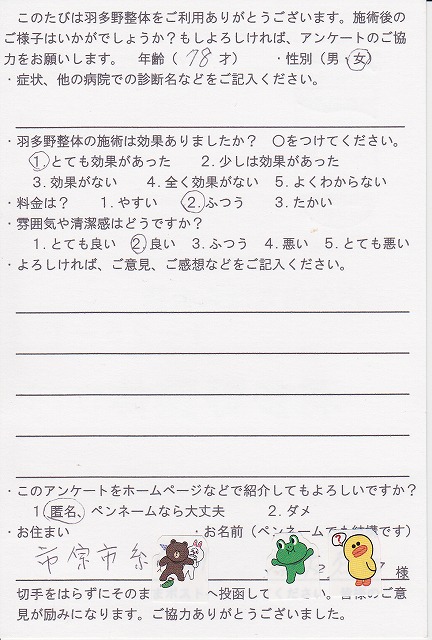 このたびは羽多野整体をご利用ありがとうございます。施術後の
ご様子はいかがでしょうか？もしよろしければ、アンケートのご協
力をお願いします。 年齢（ 78 才） ・性別（男・女）
・症状、他の病院での診断名などをご記入ください。
・羽多野整体の施術は効果ありましたか？ 〇をつけてください。
1. とても効果があった 2. 少しは効果があった
3. 効果がない 4. 全く効果がない 5. よくわからない
・料金は？ 1. やすい 2. ふつう 3. たかい
・雰囲気や清潔感はどうですか？
1. とても良い 2. 良い 3. ふつう 4. 悪い 5. とても悪い
・よろしければ、ご意見、ご感想などをご記入ください。
・このアンケートをホームページなどで紹介してもよろしいですか？
1 匿名、ペンネームなら大丈夫 2. ダメ
・お住まい ・お名前（ペンネームでも結構です）
市原市
?
様
切手をはらずにそのまま へ投函して ください。皆様のご意
見が励みになります。ご協力ありがとうございました。